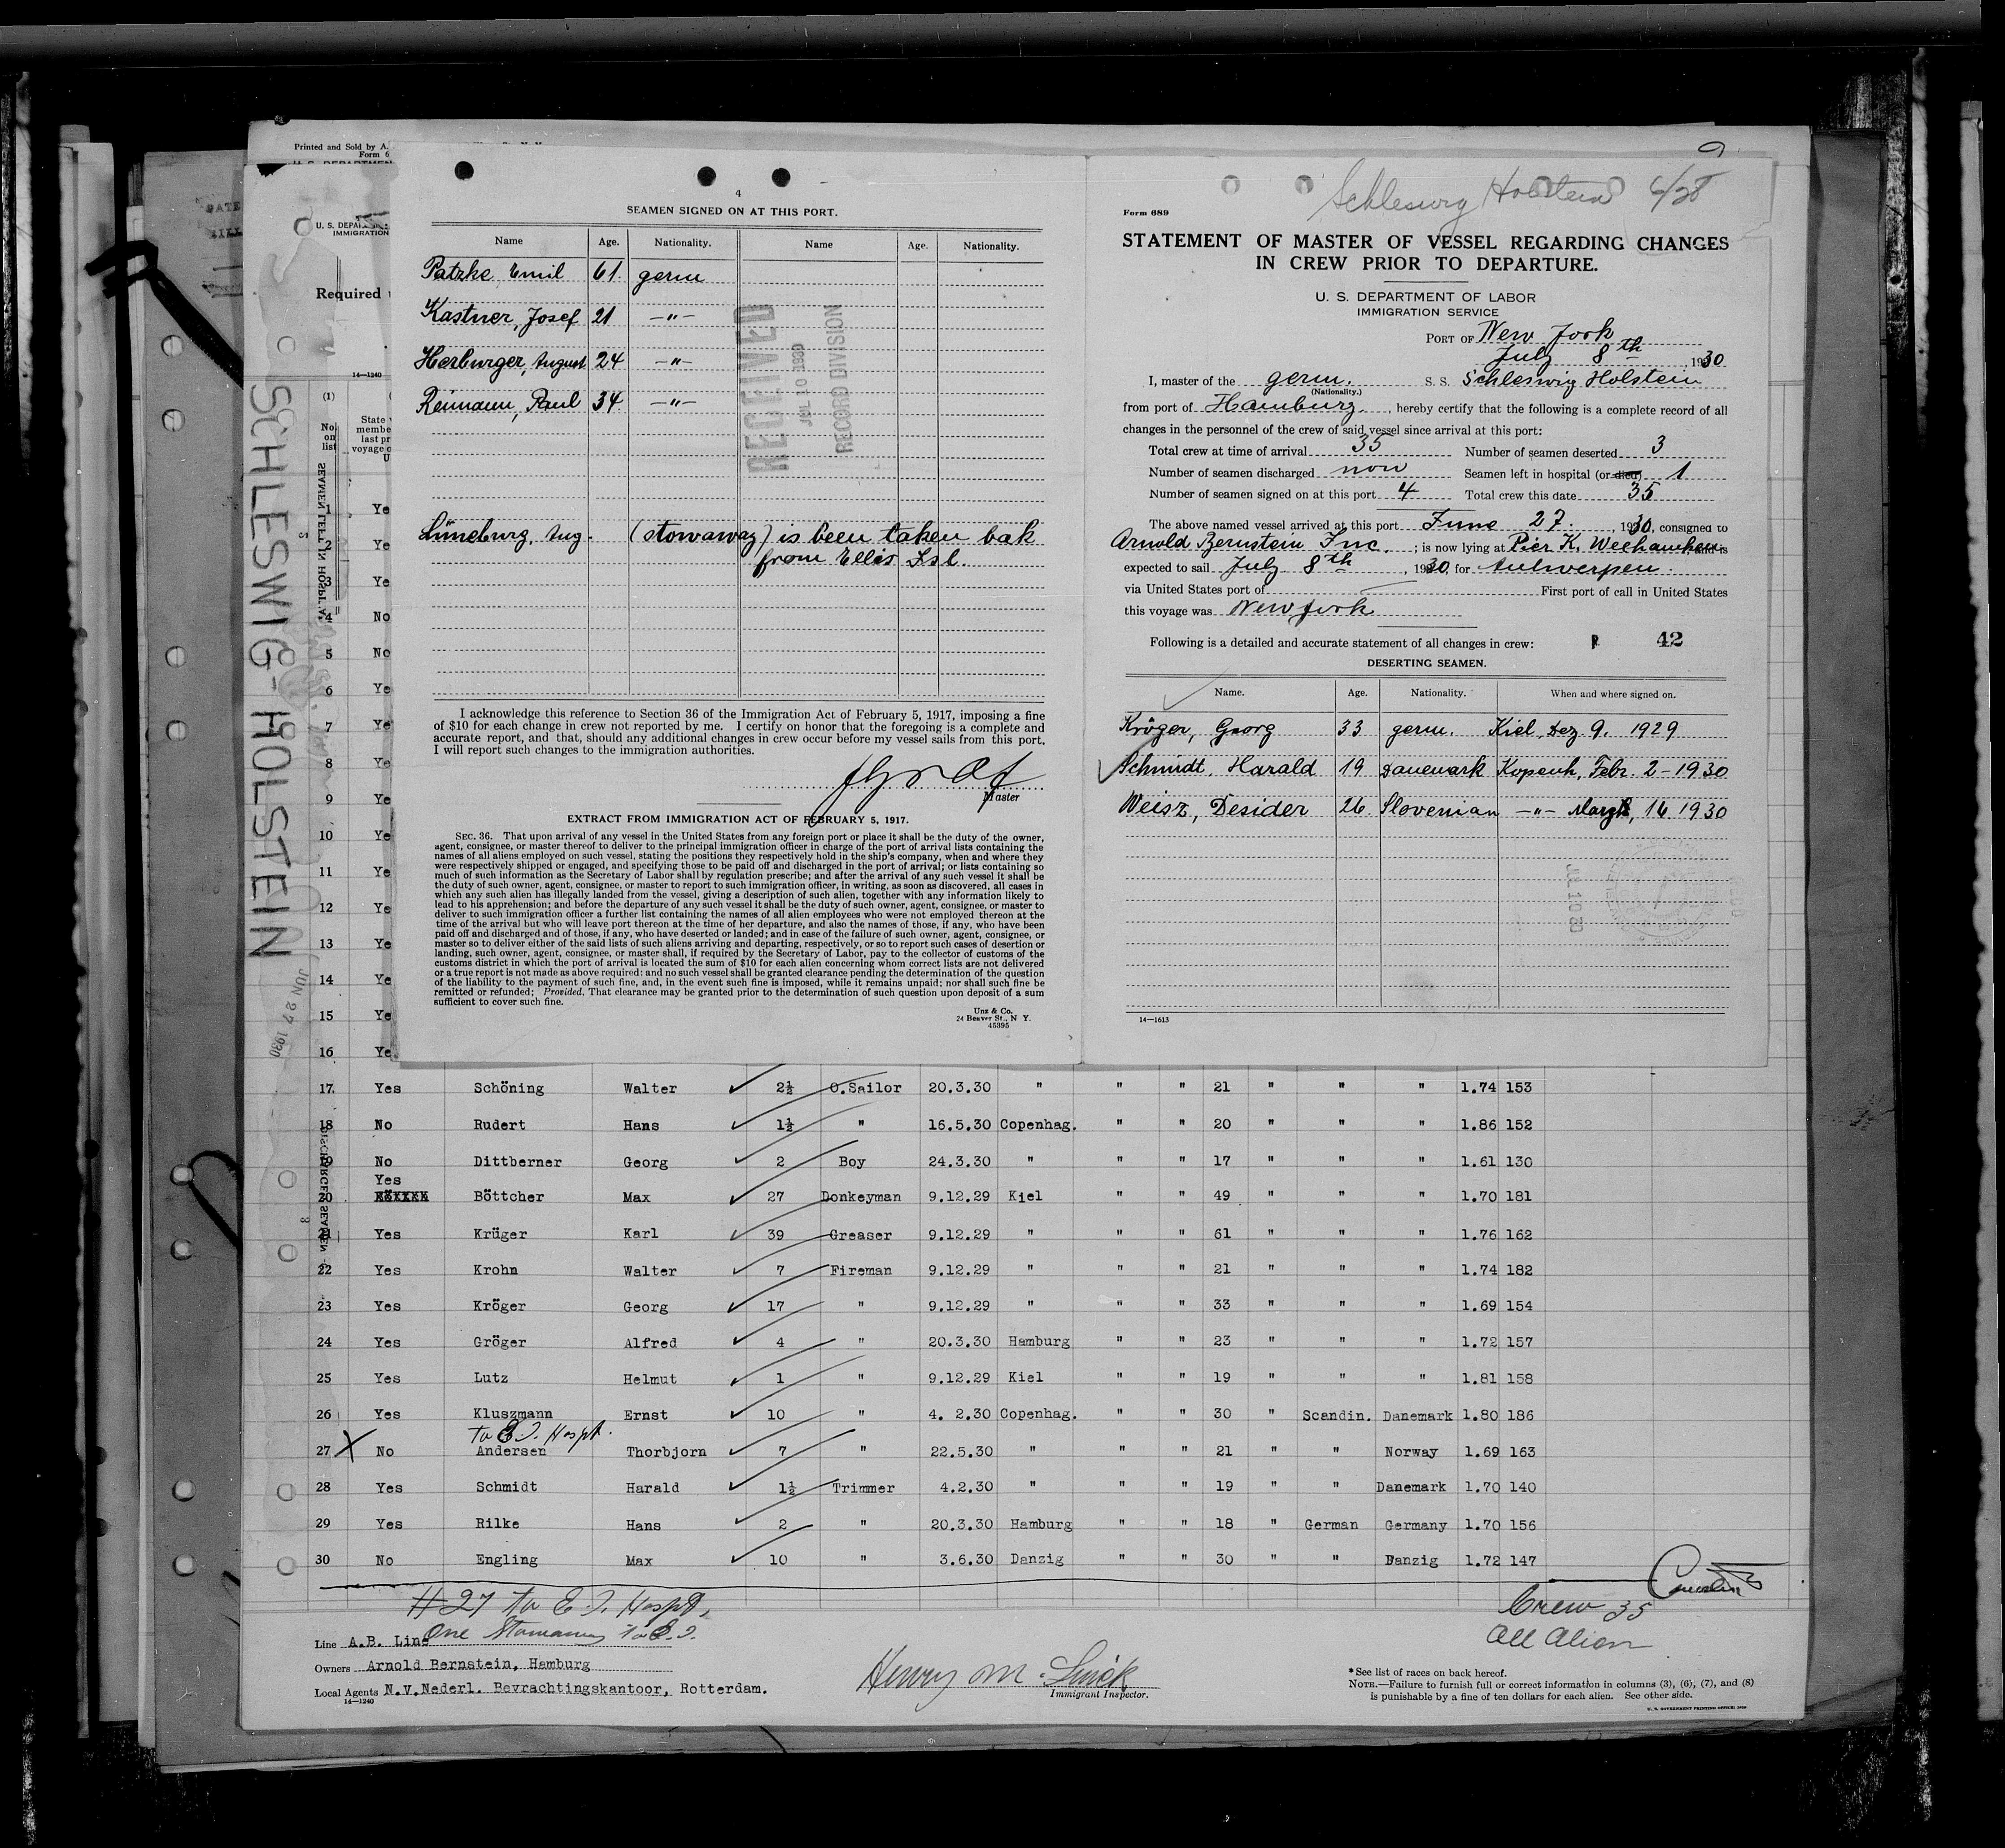 Printed and Sold by A.
Form 6
U. S. DEPA
IMMIGRATION
Required
14—1240
(1)
No.
on
list
State
membe
last pr
voyage
U
SCHLESWIG-HOLSTEIN
JUN 27 1930
SEAMEN LEFT IN HOSPITAL
DISCHARGED SEAMEN
1 Ye
2 Ye
3 Ye
4 No
5 No
6 Ye
7 Ye
8 Ye
9 Ye
10 Ye
11 Ye
12 Ye
13 Ye
14 Ye
15 Ye
16 Ye
4
SEAMEN SIGNED ON AT THIS PORT.
Name Age. Nationality. Name Age. Nationality.
Patzke, Emil 61. germ
Kastner, Josef 21 —"—
Herburger, August 24 —"—
Reimann, Paul 34. —"—
RECEIVED
JUL 10 1930
RECORD DIVISION
Lüneburg, Aug. (stowaway) is been taken bak
from Ellis Isl.
I acknowledge this reference to Section 36 of the Immigration Act of February 5, 1917, imposing a fine
of $10 for each change in crew not reported by me. I certify on honor that the foregoing is a complete and
accurate report, and that, should any additional changes in crew occur before my vessel sails from this port,
I will report such changes to the immigration authorities.
Master
EXTRACT FROM IMMIGRATION ACT OF FEBRUARY 5, 1917.
SEC. 36. That upon arrival of any vessel in the United States from any foreign port or place it shall be the duty of the owner,
agent, consignee, or master thereof to deliver to the principal immigration officer in charge of the port of arrival lists containing the
names of all aliens employed on such vessel, stating the positions they respectively hold in the ship's company, when and where they
were respectively shipped or engaged, and specifying those to be paid off and discharged in the port of arrival; or lists containing so
much of such information as the Secretary of Labor shall by regulation prescribe; and after the arrival of any such vessel it shall be
the duty of such owner, agent, consignee, or master to report to such immigration officer, in writing, as soon as discovered, all cases in
which any such alien has illegally landed from the vessel, giving a description of such alien, together with any information likely to
lead to his apprehension; and before the departure of any such vessel it shall be the duty of such owner, agent, consignee, or master to
deliver to such immigration officer a further list containing the names of all alien employees who were not employed thereon at the
time of the arrival but who will leave port thereon at the time of her departure, and also the names of those, if any, who have been
paid off and discharged and of those, if any, who have deserted or landed; and in case of the failure of such owner, agent, consignee, or
master so to deliver either of the said lists of such aliens arriving and departing, respectively, or so to report such cases of desertion or
landing, such owner, agent, consignee, or master shall, if required by the Secretary of Labor, pay to the collector of customs of the
customs district in which the port of arrival is located the sum of $10 for each alien concerning whom correct lists are not delivered
or a true report is not made as above required; and no such vessel shall be granted clearance pending the determination of the question
of the liability to the payment of such fine, and, in the event such fine is imposed, while it remains unpaid; nor shall such fine be
remitted or refunded; Provided, That clearance may be granted prior to the determination of such question upon deposit of a sum
sufficient to cover such fine.
Unz & Co.
24 Beaver St., N. Y.
45395
Schleswig Holstein 6/28
Form 689
STATEMENT OF MASTER OF VESSEL REGARDING CHANGES
IN CREW PRIOR TO DEPARTURE.
U. S. DEPARTMENT OF LABOR
IMMIGRATION SERVICE
PORT OF New York
July 8th, 1930
I, master of the germ. S. S. Schleswig Holstein
(Nationality.)
from port of Hamburg, hereby certify that the following is a complete record of all
changes in the personnel of the crew of said vessel since arrival at this port:
Total crew at time of arrival 35 Number of seamen deserted 3
Number of seamen discharged non Seamen left in hospital (or died) 1
Number of seamen signed on at this port 4 Total crew this date 35
The above named vessel arrived at this port June 27., 1930, consigned to
Arnold Bernstein Inc.; is now lying at Pier K, Weehawken and is
expected to sail July 8th, 1930, for Antwerpen.
via United States port of — First port of call in United States
this voyage was New York
Following is a detailed and accurate statement of all changes in crew: 42
DESERTING SEAMEN.
Name. Age. Nationality. When and where signed on.
Kröger, Georg 33 germ. Kiel, Dez 9. 1929
Schmidt, Harald 19 Danemark Kopenh, Febr. 2-1930
Weisz, Desider 26 Slovenian —"— March, 16 1930
JUL 10 30
14—1613
17 Yes Schöning Walter 2½ O.Sailor 20.3.30 " " " 21 " " " 1.74 153
18 No Rudert Hans 1½ " 16.5.30 Copenhag. " " 20 " " " 1.86 152
19 No Dittberner Georg 2 Boy 24.3.30 " " " 17 " " " 1.61 130
Yes
20 Böttcher Max 27 Donkeyman 9.12.29 Kiel " " 49 " " " 1.70 181
21 Yes Krüger Karl 39 Greaser 9.12.29 " " " 61 " " " 1.76 162
22 Yes Krohn Walter 7 Fireman 9.12.29 " " " 21 " " " 1.74 182
23 Yes Kröger Georg 17 " 9.12.29 " " " 33 " " " 1.69 154
24 Yes Gröger Alfred 4 " 20.3.30 Hamburg " " 23 " " " 1.72 157
25 Yes Lutz Helmut 1 " 9.12.29 Kiel " " 19 " " " 1.81 158
26 Yes Kluszmann Ernst 10 " 4. 2.30 Copenhag. " " 30 " Scandin. Danemark 1.80 186
To E.I. Hospt.
27 X No Andersen Thorbjorn 7 " 22.5.30 " " " 21 " " Norway 1.69 163
28 Yes Schmidt Harald 1½ Trimmer 4.2.30 " " " 19 " " Danemark 1.70 140
29 Yes Rilke Hans 2 " 20.3.30 Hamburg " " 18 " German Germany 1.70 156
30 No Engling Max 10 " 3.6.30 Danzig " " 30 " " Danzig 1.72 147
#27 to E.I. Hospt,
One Stowaway to E.I.
Crew 35
All Alien
Line A.B. Line
Owners Arnold Bernstein, Hamburg
Local Agents N.V.Nederl. Bevrachtingskantoor, Rotterdam.
14—1240
Henry M.
Immigrant Inspector.
*See list of races on back hereof.
NOTE.—Failure to furnish full or correct information in columns (3), (6), (7), and (8)
is punishable by a fine of ten dollars for each alien. See other side.
U. S. GOVERNMENT PRINTING OFFICE: 1929